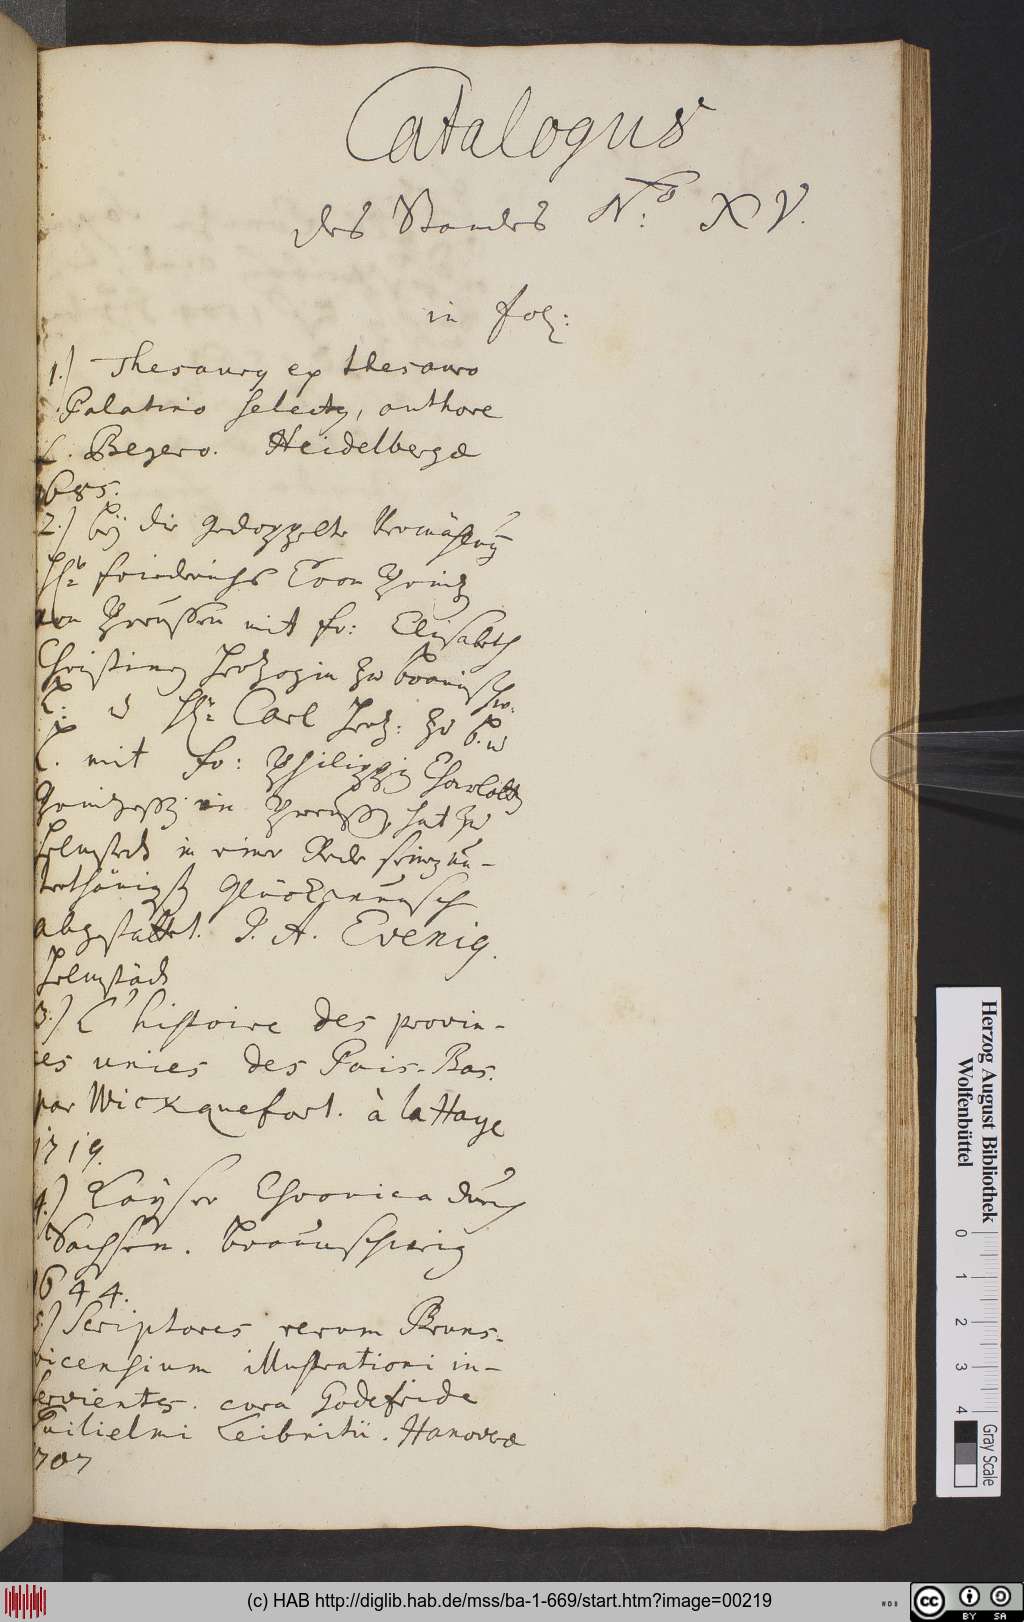 Catalogus
des Standes No: XV.
in fol:
1.) Thesaurus ex thesauro
Palatino selectus, authore
L. Begero. Heidelbergæ
1685.
2.) beÿ die gedoppelte Vermählung
Hl. Friederichs Cron Printz
von Preussen mit fr: Elisabeth
Christinen Hertzogin zu Braunschw:
L. u Hl. Carl Hertz: zu B. u
L. mit fr: Philippin Charlotten
Printzeßin in Preussen, hat zu
Helmstedt in einer Rede seinen un-
terthänigst Glückwunsch
abgestattet. J. A. Evenig.
Helmstädt
3.) L'histoire des provin-
ces unies des Pais-Bas.
par Wicxquefort. à la Haye
1719.
4.) Kaÿser Chronica durch
Sachsen. Braunschweig
1644.
5.) Scriptores rerum Bruns-
vicensium illustrationi in-
servientes. cura Godefride
Guilielmi Leibnitii. Hanovræ
1707
Herzog August Bibliothek
Wolfenbüttel
0 1 2 3 4
Gray Scale
(c) HAB http://diglib.hab.de/mss/ba-1-669/start.htm?image=00219
WDB
cc BY SA